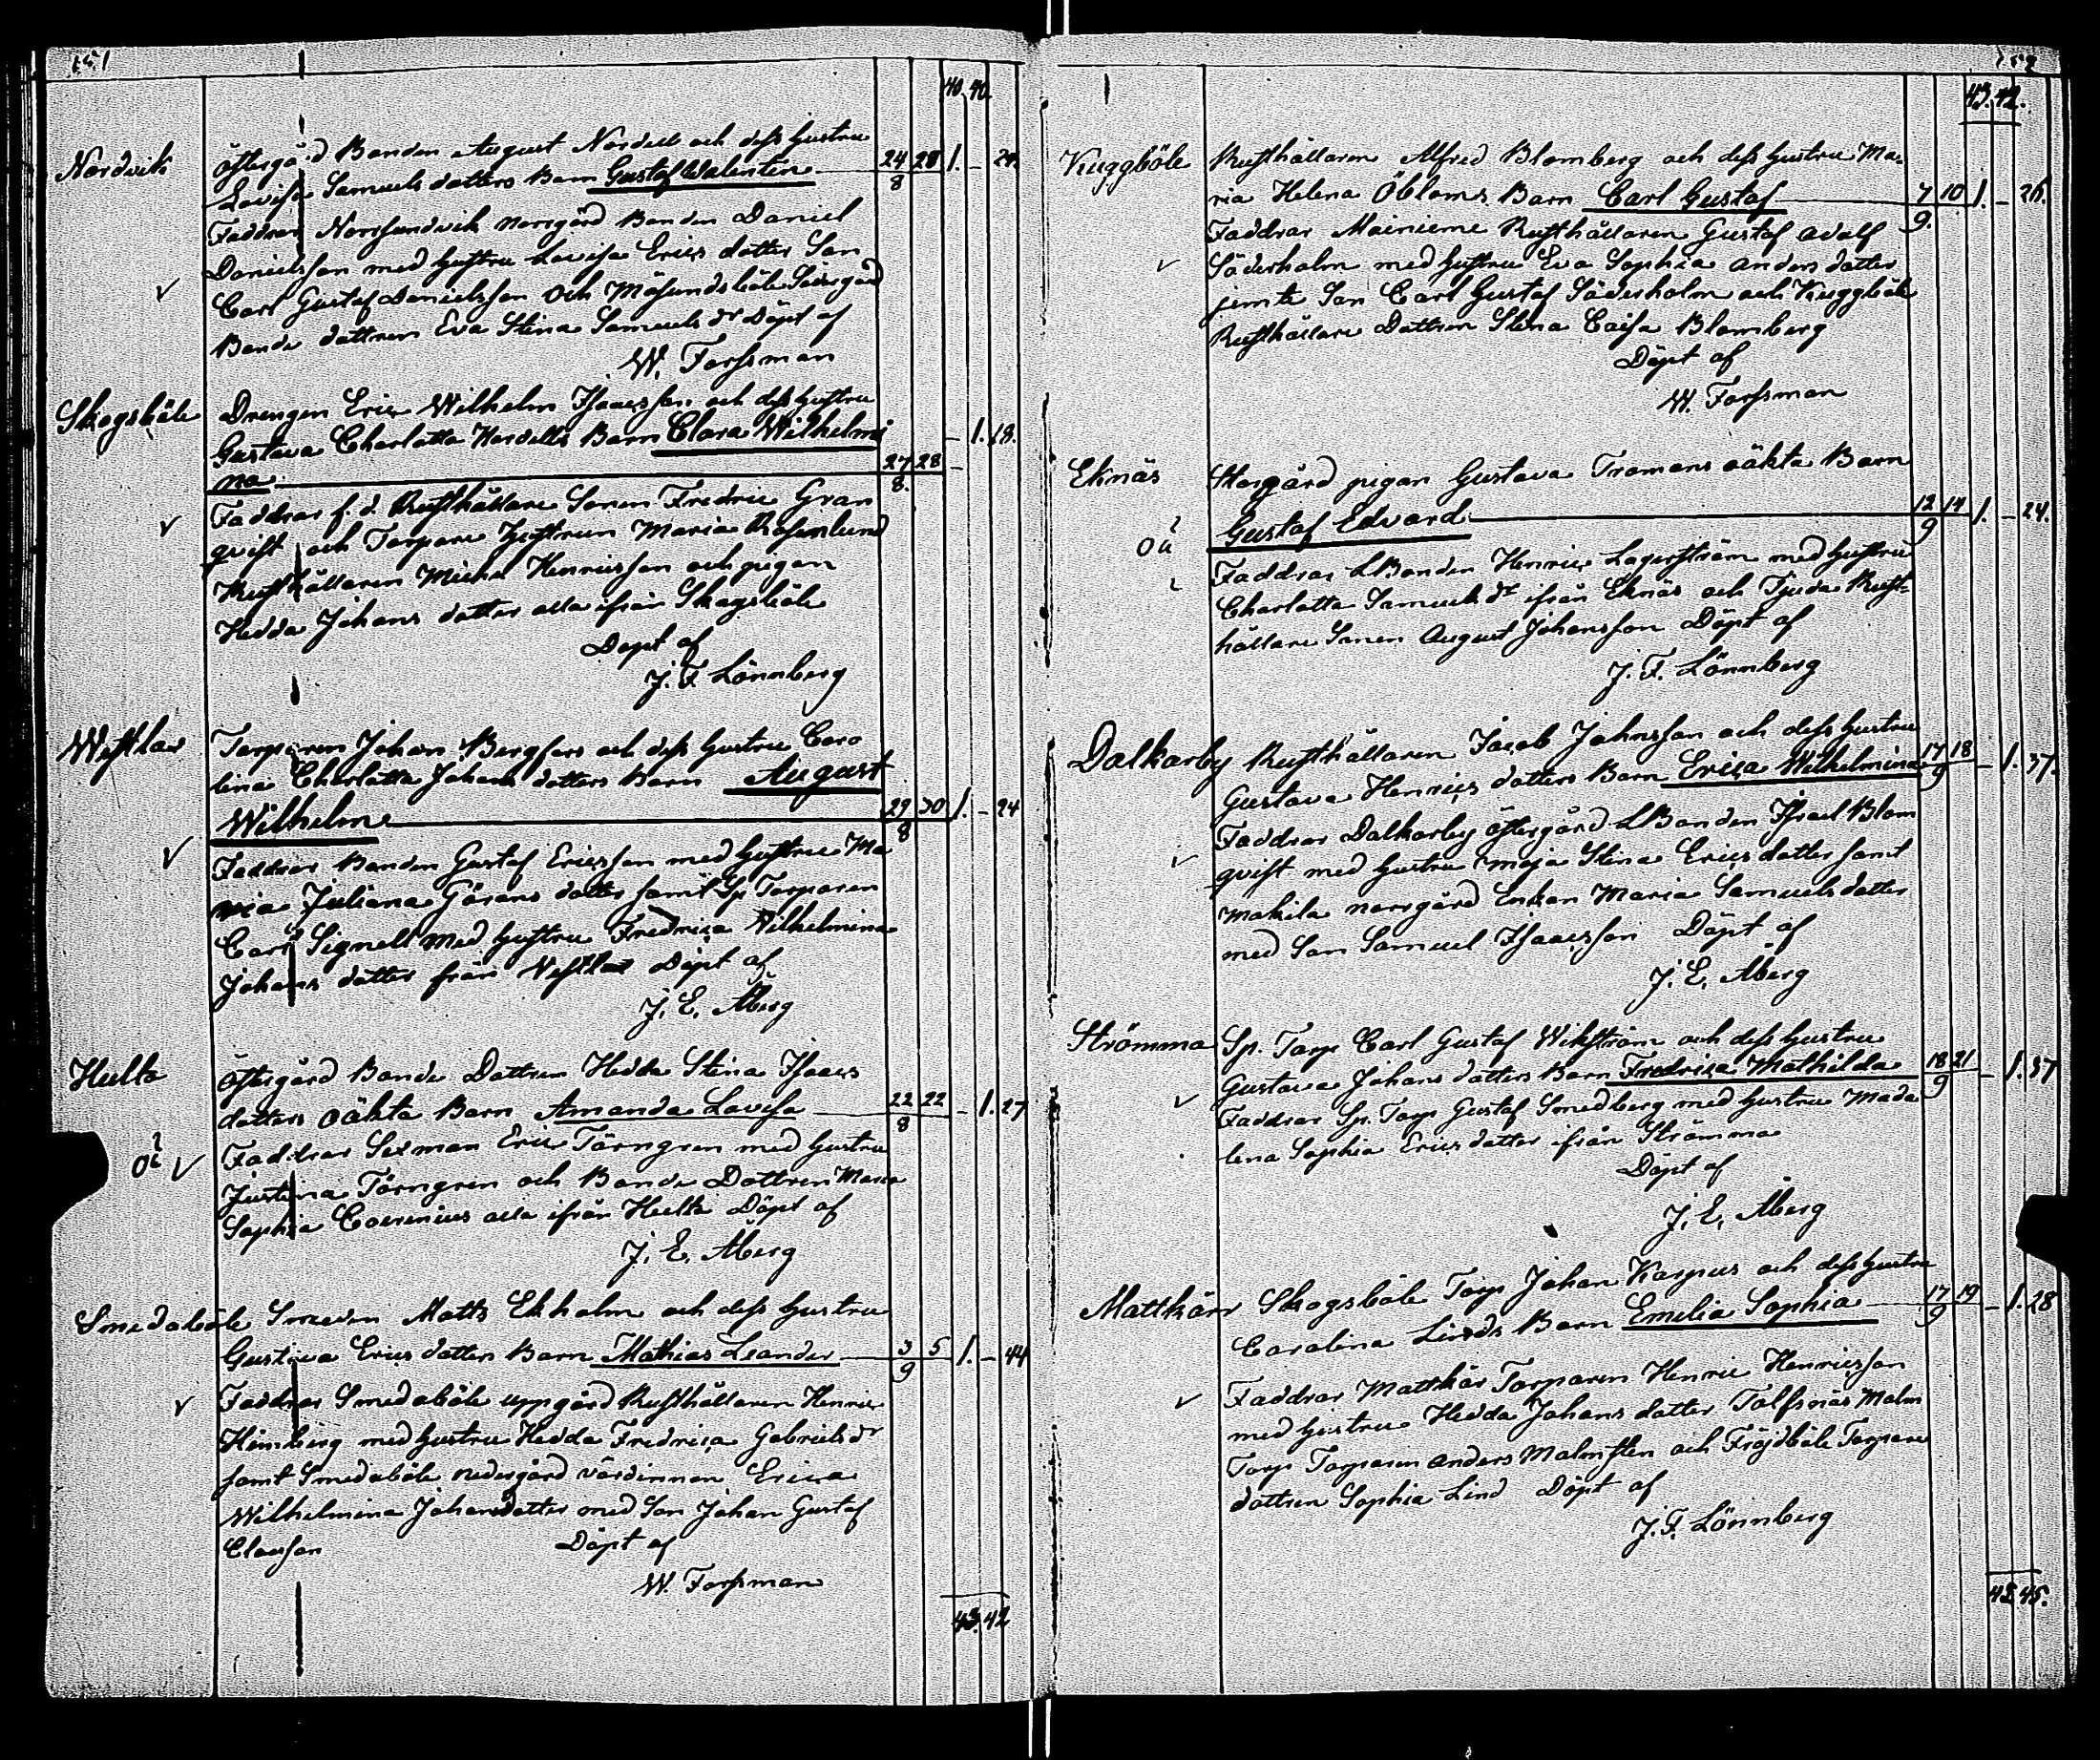 151
40. 40.
Nordvik Östergård Bonden August Nordell och dess hustru
Lovisa Samuels dotters Barn Gustaf Walentin 24/8 28 1. – 29.
Faddrar Norrsundvik norrgård Bonden Daniel
Danielsson med hustru Lovisa Erics dotter Son
Carl Gustaf Danielsson och Mösundsböle Södergård
Bonde dottren Eva Stina Samuels dr Döpt af
W. Forssman
Skogsböle Drengen Eric Wilhelm Isacsson och dess hustru
Gustava Charlotta Nordells Barn Clara Wilhelmi – 1. 18.
na 27/8. 28
Faddrar f. d. Rusthållare Sonen Fredric Gran
qvist och Torpare hustrun Maria Rosenlund
Rusthållaren Michel Henricsson och pigan
Hedda Johans dotter alla ifrån Skogsböle
Döpt af
J. F. Lönnberg
Westlax Torparen Johan Bergfors och dess hustru Caro
lina Charlotta Johans dotters Barn August
Wilhelm 29/8 30 1. – 24
Faddrar Bonden Gustaf Ericsson med hustru Ma
ria Juliana Görans dotter samt Sp. Torparen
Carl Signell med hustru Fredrica Wilhelmina
Johans dotter från Westlax Döpt af
J. E. Åberg
Hulta Östergård Bonde Dottren Hedda Stina Isaacs
dotters oäkta Barn Amanda Lovisa 22/8 22 – 1. 27
oä Faddrar Sexman Eric Törngren med hustru
Justina Törngren och Bonde Dottren Maria
Sophia Coerenius alla ifrån Hulta Döpt af
J. E. Åberg
Smedaböle Smeden Matts Ekholm och dess hustru
Gustava Erics dotters Barn Mathias Leander 3/9 5 1. – 44
Faddrar Smedaböle uppgård Rusthållaren Henric
Himberg med hustru Hedda Fredrica Gabriels dr
samt Smedaböle nedergård värdinnan Erica
Wilhelmina Johansdotter med Son Johan Gustaf
Clausson Döpt af
W. Forssman
43. 42
152
43. 42.
Kuggböle Rusthållaren Alfred Blomberg och dess hustru Ma
ria Helena Öbloms Barn Carl Gustaf 7/9. 10 1. – 26.
Faddrar Mainieme Rusthållaren Gustaf Adolf
Söderholm med hustru Eva Sophia Anders dotter
jemte Son Carl Gustaf Söderholm och Kuggböle
Rusthållare Dottren Stina Caisa Blomberg
Döpt af
W. Forssman
Eknäs Storgård pigan Gustava Tromans oäkta Barn
oä Gustaf Edvard 12/9 14 1. – 24.
Faddrar LBonden Henric Lagerström med hustru
Charlotta Samuels dr ifrån Eknäs och Tjuda Rust-
hållare Sonen August Johansson Döpt af
J. F. Lönnberg
Dalkarby Rusthållaren Jacob Johnsson och dess hustru
Gustava Henrics dotters Barn Erica Wilhelmina 17/9 18 – 1. 37.
Faddrar Dalkarby östergård LBonden Israel Blom
qvist med hustru Maja Stina Erics dotter samt
Makila norrgård Enkan Maria Samuels dotter
med Son Samuel Isaacsson Döpt af
J. E. Åberg
Strömma Sp. Torp Carl Gustaf Wikström och dess hustru
Gustava Johans dotters Barn Fredrica Mathilda 18/9 21 – 1. 37
Faddrar Sp. Torp Gustaf Smedberg med hustru Mada
lena Sophia Erics dotter ifrån Strömma
Döpt af
J. E. Åberg
Mattkärr Skogsböle Torp Johan Karpus och dess hustru
Carolina Linds Barn Emelia Sophia 17/9 19 – 1. 28
Faddrar Mattkär Torparen Henric Henricsson
med hustru Hedda Johans dotter Tolfsnäs Malm
Torp Torparen Anders Malmsten och Fröjdböle Torpare
dottren Sophia Lind Döpt af
J. F. Lönnberg
45. 45.